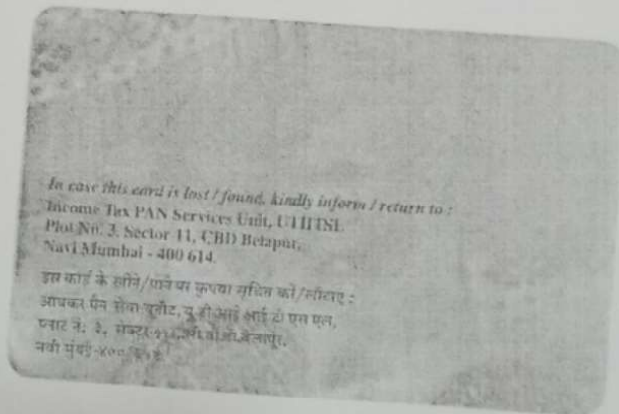 In case this card is lost / found, kindly inform / return to :
Income Tax PAN Services Unit, UTIITSL
Plot No. 3, Sector 11, CBD Belapur,
Navi Mumbai - 400 614.
इस कार्ड के खोने/पाने पर कृपया सूचित करें/लौटाएं :
आयकर पैन सेवा यूनीट, यू टी आई आई टी एस एल,
प्लाट नं: ३, सेक्टर-११, सी.बी.डी.बेलापूर,
नवी मुंबई-४००